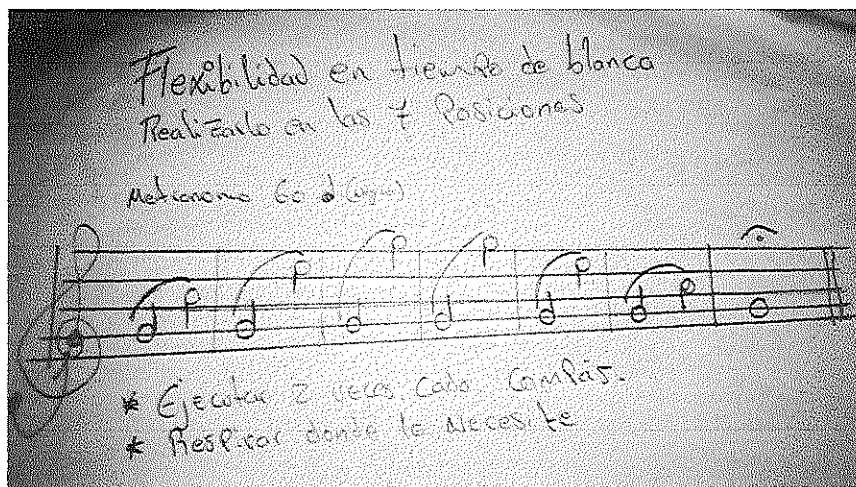 Flexibilidad en tiempo de blanca
Realizarlo en las 7 Posiciones
Metronomo 60
* Ejecutar 2 veces cada Compás.
* Respirar donde lo Necesite